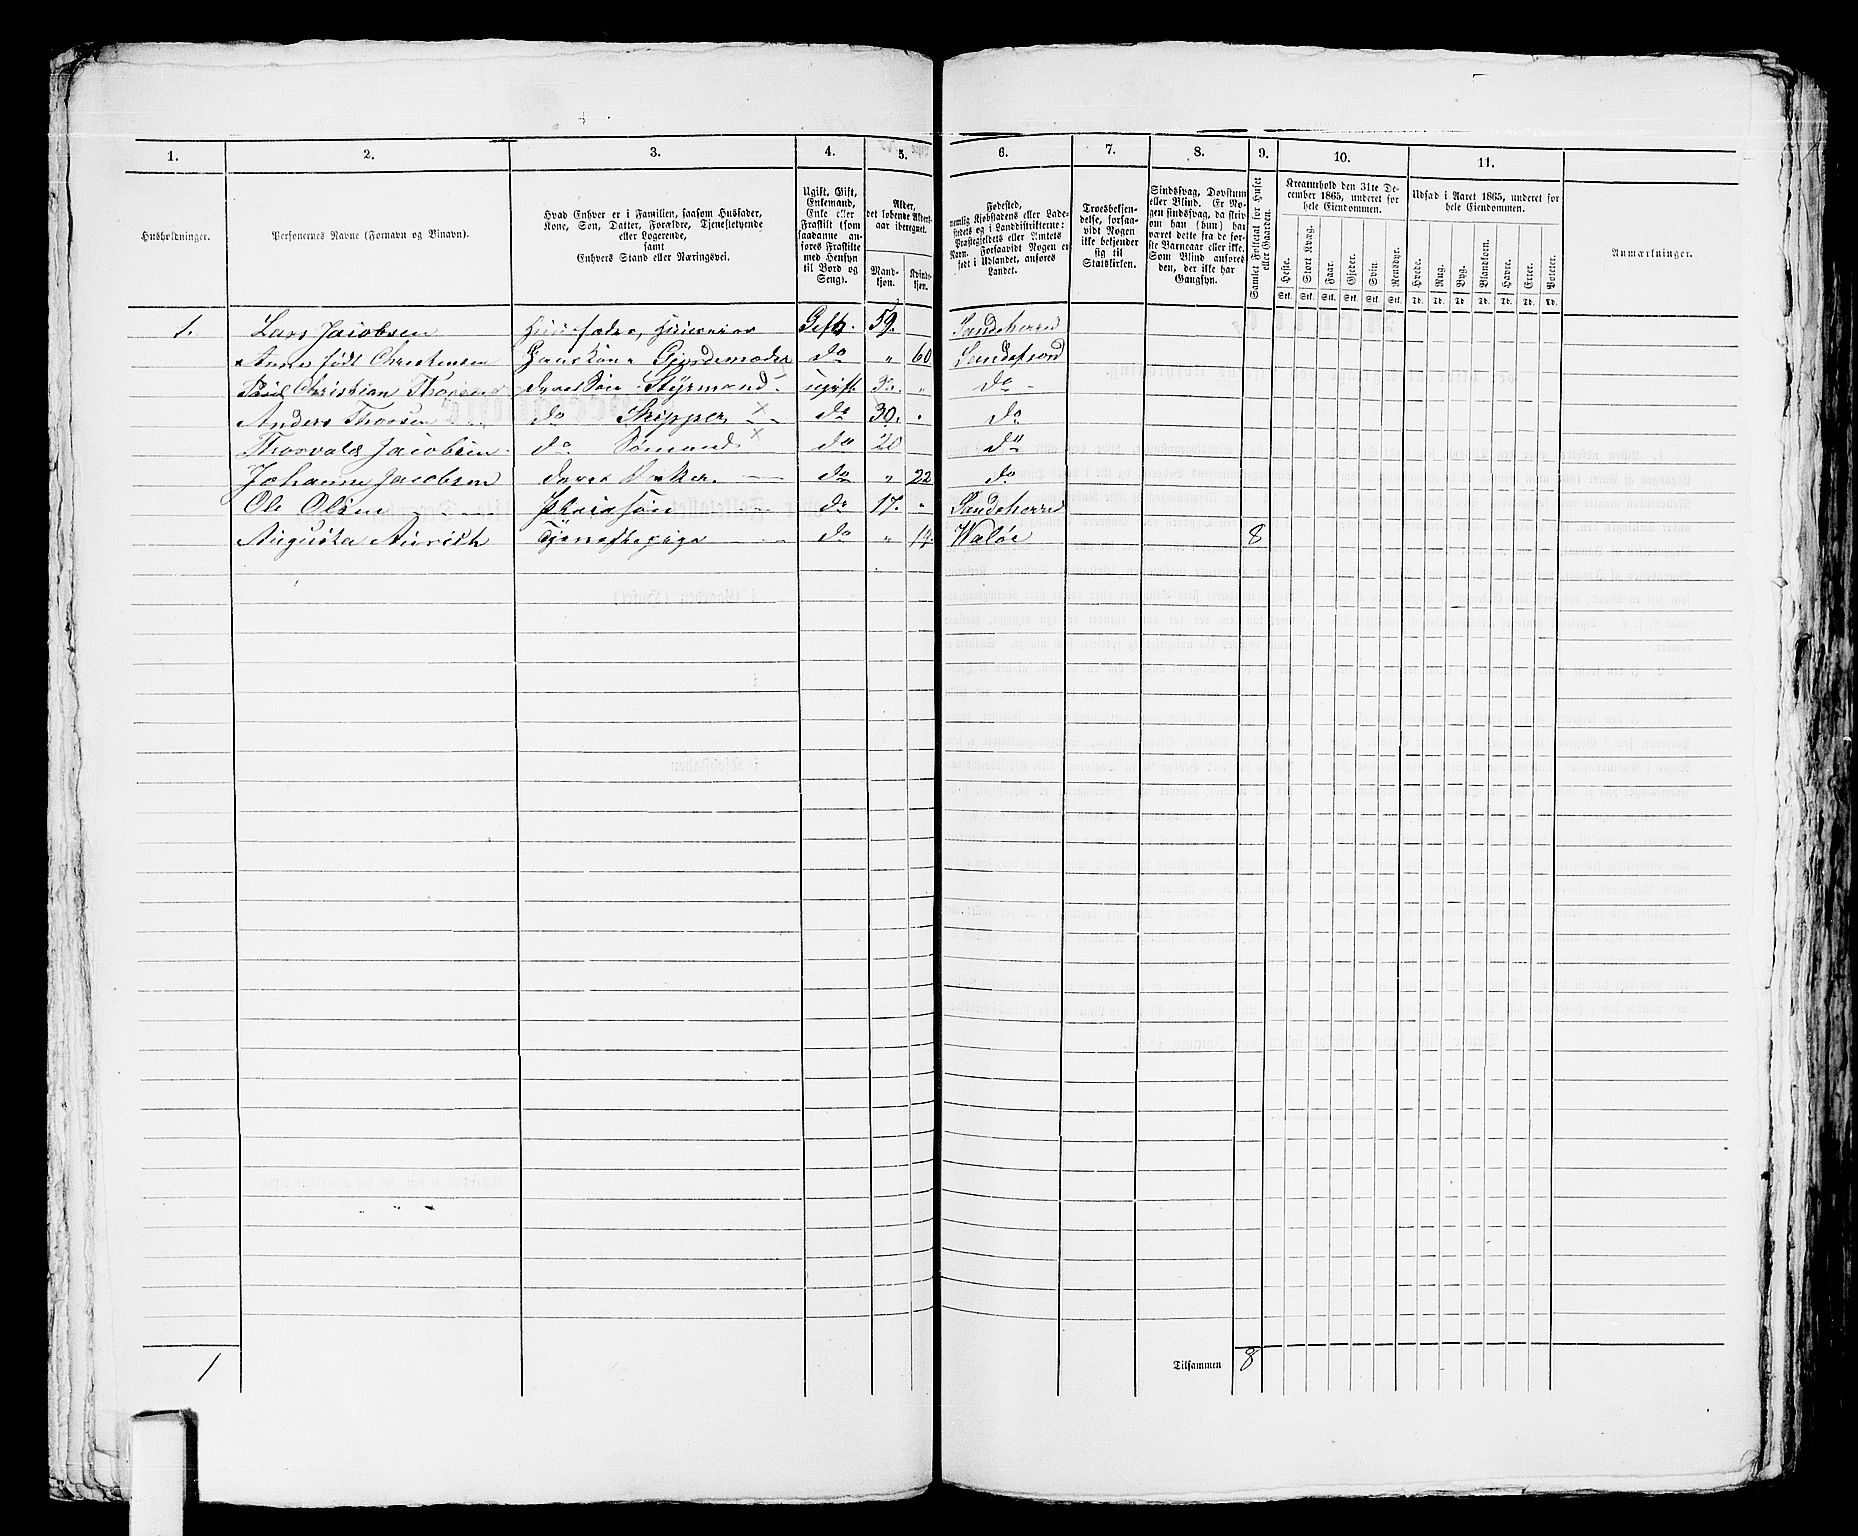 1. 2. 3. 4. 5. 6. 7. 8. 9. 10. 11.
Husholdninger.
Personernes Navne (Fornavn og Binavn).
Hvad Enhver er i Familien, saasom Husfader,
Kone, Søn, Datter, Forældre, Tjenestetyende
eller Logerende,
samt
Enhvers Stand eller Næringsvei.
Ugift, Gift,
Enkemand,
Enke eller
Fraskilt (som
saadanne an-
føres Fraskilte
med Hensyn
til Bord og
Seng).
Alder,
det løbende Alders-
aar iberegnet.
Mand-
kjøn.
Kvinde-
kjøn.
Fødested,
nemlig Kjøbstadens eller Lade-
stedets og i Landdistrikterne:
Præstegjeldets eller Amtets
Navn. Forsaavidt Nogen er
født i Udlandet, anføres
Landet.
Troesbekjen-
delse, forsaa-
vidt Nogen
ikke bekjender
sig til
Statskirken.
Sindssvag, Døvstum
eller Blind. Er No-
gen sindssvag, da skriv
om han (hun) har
været dette fra de før-
ste Barneaar eller ikke.
Som Blind anføres
den, der ikke har
Gangsyn.
Samlet Folketal for Huset
eller Gaarden.
Kreaturhold den 31te De-
cember 1865, underet for
hele Eiendommen.
Heste. Stort Kvæg. Faar. Gjeder. Svin. Rensdyr.
Stk. Stk. Stk. Stk. Stk. Stk.
Udsæd i Aaret 1865, underet for
hele Eiendommen.
Hvede. Rug. Byg. Blandkorn. Havre. Erter. Poteter.
Td. Td. Td. Td. Td. Td. Td.
Anmærkninger.
1. Lars Jacobsen Huusfader, Gift. 59. Sandeherred
Anne født Christensen Hans Kone Gjordemoder do " 60 Sandefiord
Christian Thorsen deres Søn Styrmand ugift " do
Anders Thorsen do Skipper × do 30. " do
Thorvald Jacobsen do Sømand × do 20 do
Johanne Jacobsen deres Datter do " 22 do
Ole Olsen Pleiesøn do 17. " Sandeherred
Augusta Tjenestepige do " Waløe 8
1 Tilsammen 8